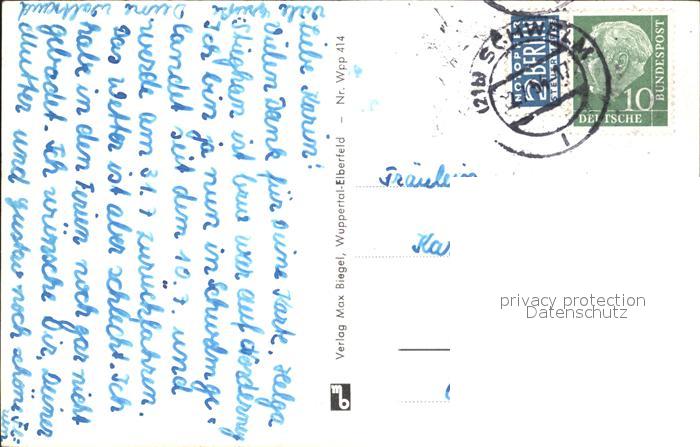 Liebe Karin!
Vielen Dank für Deine Karte. Helga
Ich bin ja nun in Schwelm ge-
landet seit dem 10.7. und
werde am 31.7 zurückfahren.
Das Wetter ist aber schlecht. Ich
habe in den Ferien noch gar nicht
gebadet. Ich wünsche Dir, Deiner
Mutter und Gustav noch schöne
Viele Grüße
Deine Waltraud
Verlag Max Biegel, Wuppertal-Elberfeld – Nr. Wpp 414
mb
NOTOPFER
2 BERLIN
STEUERMARKE
(21b) SCHWELM
1
10
DEUTSCHE
BUNDESPOST
Fräulein
Ka
privacy protection
Datenschutz